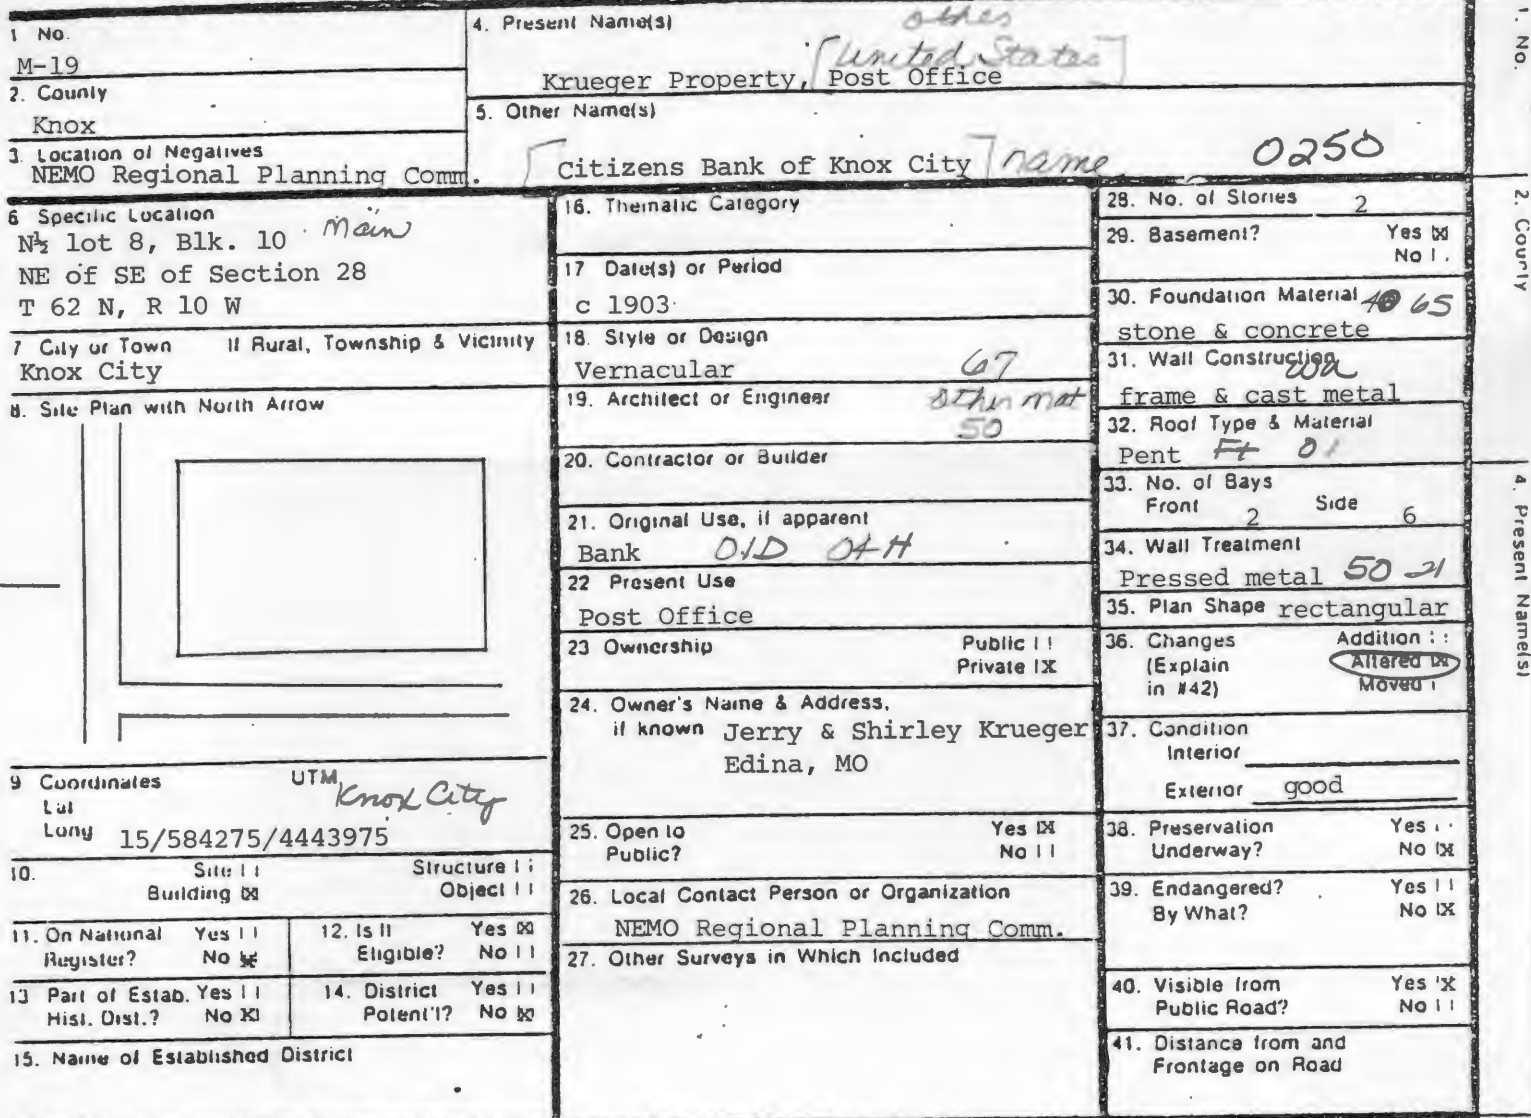 1 No.
M-19
2. County
Knox
3. Location of Negatives
NEMO Regional Planning Comm.
4. Present Name(s)
other
[United States]
Krueger Property, Post Office
5. Other Name(s)
[Citizens Bank of Knox City] name
0250
6 Specific Location
N½ lot 8, Blk. 10 Main
NE of SE of Section 28
T 62 N, R 10 W
7 City or Town If Rural, Township & Vicinity
Knox City
8. Site Plan with North Arrow
9 Coordinates UTM
Lat Knox City
Long 15/584275/4443975
10. Site Structure
Building X Object
11. On National Yes
Register? No X
12. Is It Yes X
Eligible? No
13 Part of Estab. Yes
Hist. Dist.? No X
14. District Yes
Potent'l? No X
15. Name of Established District
16. Thematic Category
17 Date(s) or Period
c 1903
18. Style or Design
Vernacular 67
19. Architect or Engineer other mat
50
20. Contractor or Builder
21. Original Use, if apparent
Bank 01D 04H
22 Present Use
Post Office
23 Ownership Public
Private X
24. Owner's Name & Address,
if known Jerry & Shirley Krueger
Edina, MO
25. Open to Yes X
Public? No
26. Local Contact Person or Organization
NEMO Regional Planning Comm.
27. Other Surveys in Which Included
28. No. of Stories 2
29. Basement? Yes X
No
30. Foundation Material 40 65
stone & concrete
31. Wall Construction
frame & cast metal
32. Roof Type & Material
Pent Ft 01
33. No. of Bays
Front 2 Side 6
34. Wall Treatment
Pressed metal 50 21
35. Plan Shape rectangular
36. Changes Addition
(Explain Altered X
in #42) Moved
37. Condition
Interior
Exterior good
38. Preservation Yes
Underway? No X
39. Endangered? Yes
By What? No X
40. Visible from Yes X
Public Road? No
41. Distance from and
Frontage on Road
1. No.
2. County
4. Present Name(s)